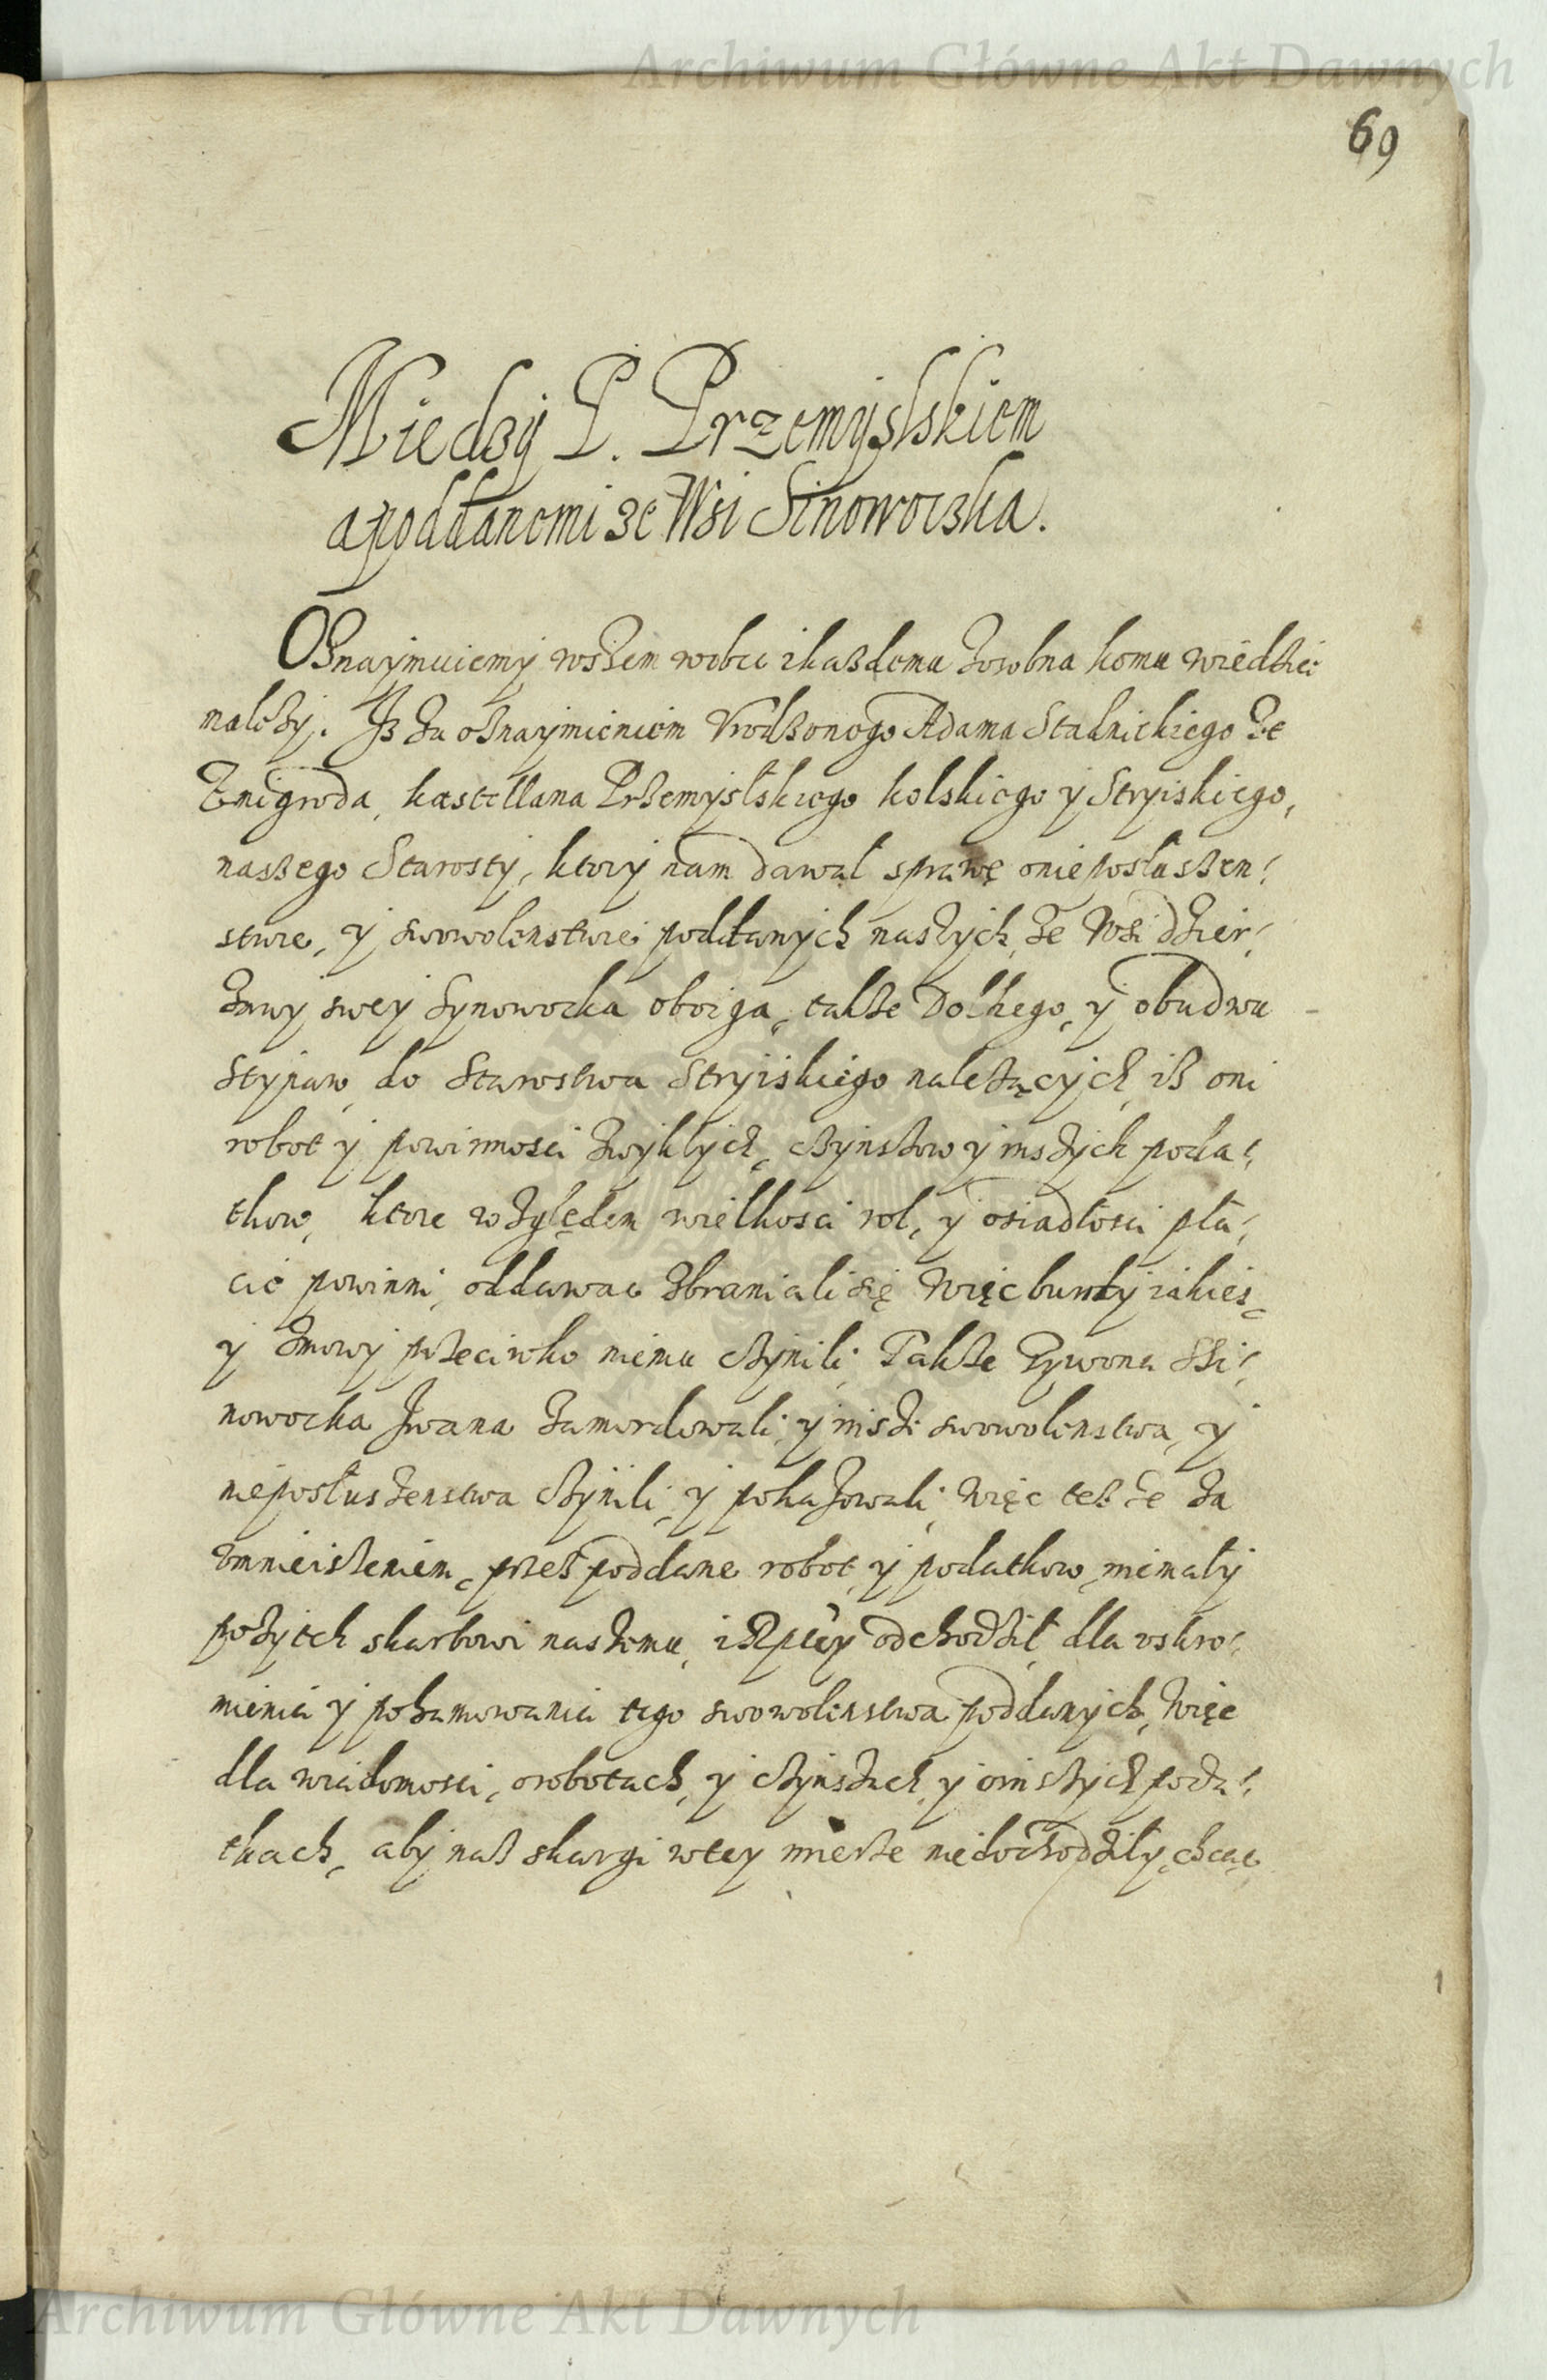 Archiwum Główne Akt Dawnych
69
Miedzÿ P. Przemÿslskiem
a poddanemi ze Wsi Sinowoczka.
Oznaÿmuiemÿ wszem wobec i każdemu zosobna komu wiedzieć
należÿ. Jż za oznaÿmieniem Vrodzonego Adama Stadnickiego ze
Żmigroda, kastellana Przemÿślskiego kolskiego ÿ Stryiskiego,
naszego Starostÿ, ktorÿ nam dawał sprawę o nieposłuszen:
stwie, ÿ swowolenstwie poddanych naszÿch, ze Wsi dzier:
żawy sweÿ Synowocka oboiga, także Dolhego, ÿ obudwu
Stÿnaw, do Starostwa Strÿiskiego należącÿch, iż oni
robot ÿ powinnosci zwÿkłÿch, czÿnszow ÿ inszÿch poda:
tkow, ktore wzglęḋem wielkosci rol, ÿ osiadłosci pła:
cić powinni, oddawać zbraniali się, Więc buntÿ iakieś,
ÿ zmowÿ przeciwko niemu czÿnili, Także Tywona Ssi:
nowocka Jwana zamordowali, ÿ insze swowolenstwa, ÿ
nieposłuszenstwa czÿnili, ÿ pokazowali, Więc też że za
zmnieiszeniem, przez poddane robot, ÿ podatkow, niemałÿ
pożÿtek skarbowi naszemu, i Rptey odchodził, dla uskro:
mienia ÿ pohamowania tego swowolenstwa poddanÿch, Więc
dla wiadomosci, o robotach, ÿ czÿnszach, ÿ o inszÿch poda:
tkach, abÿ nas skargi w teÿ mierze niedochodziłÿ, chcąc
Archiwum Główne Akt Dawnych